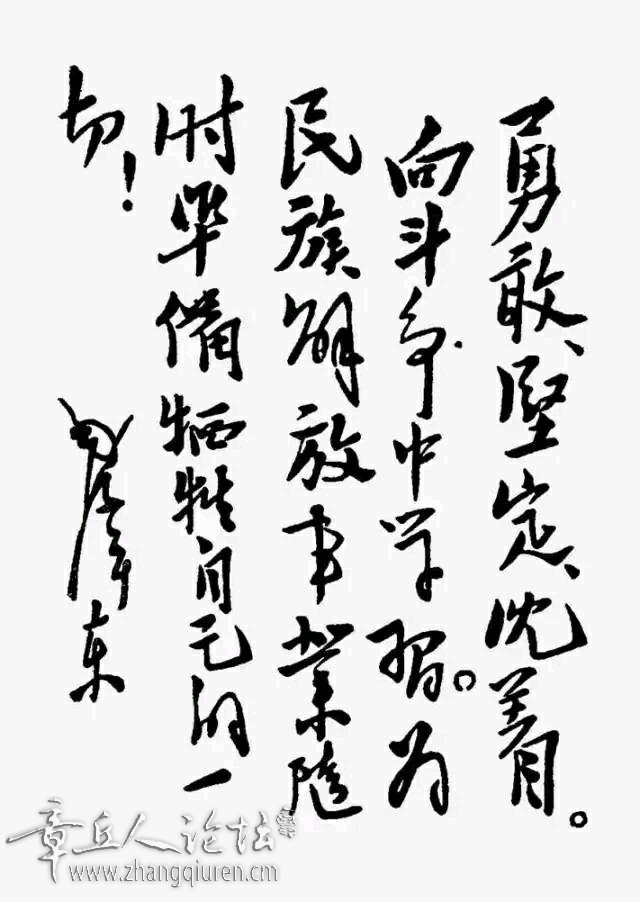 勇敢、坚定、沈着。
向斗争中学习。为
民族解放事业随
时準備牺牲自己的一
切！
毛泽东
章丘人论坛
www.zhangqiuren.cm